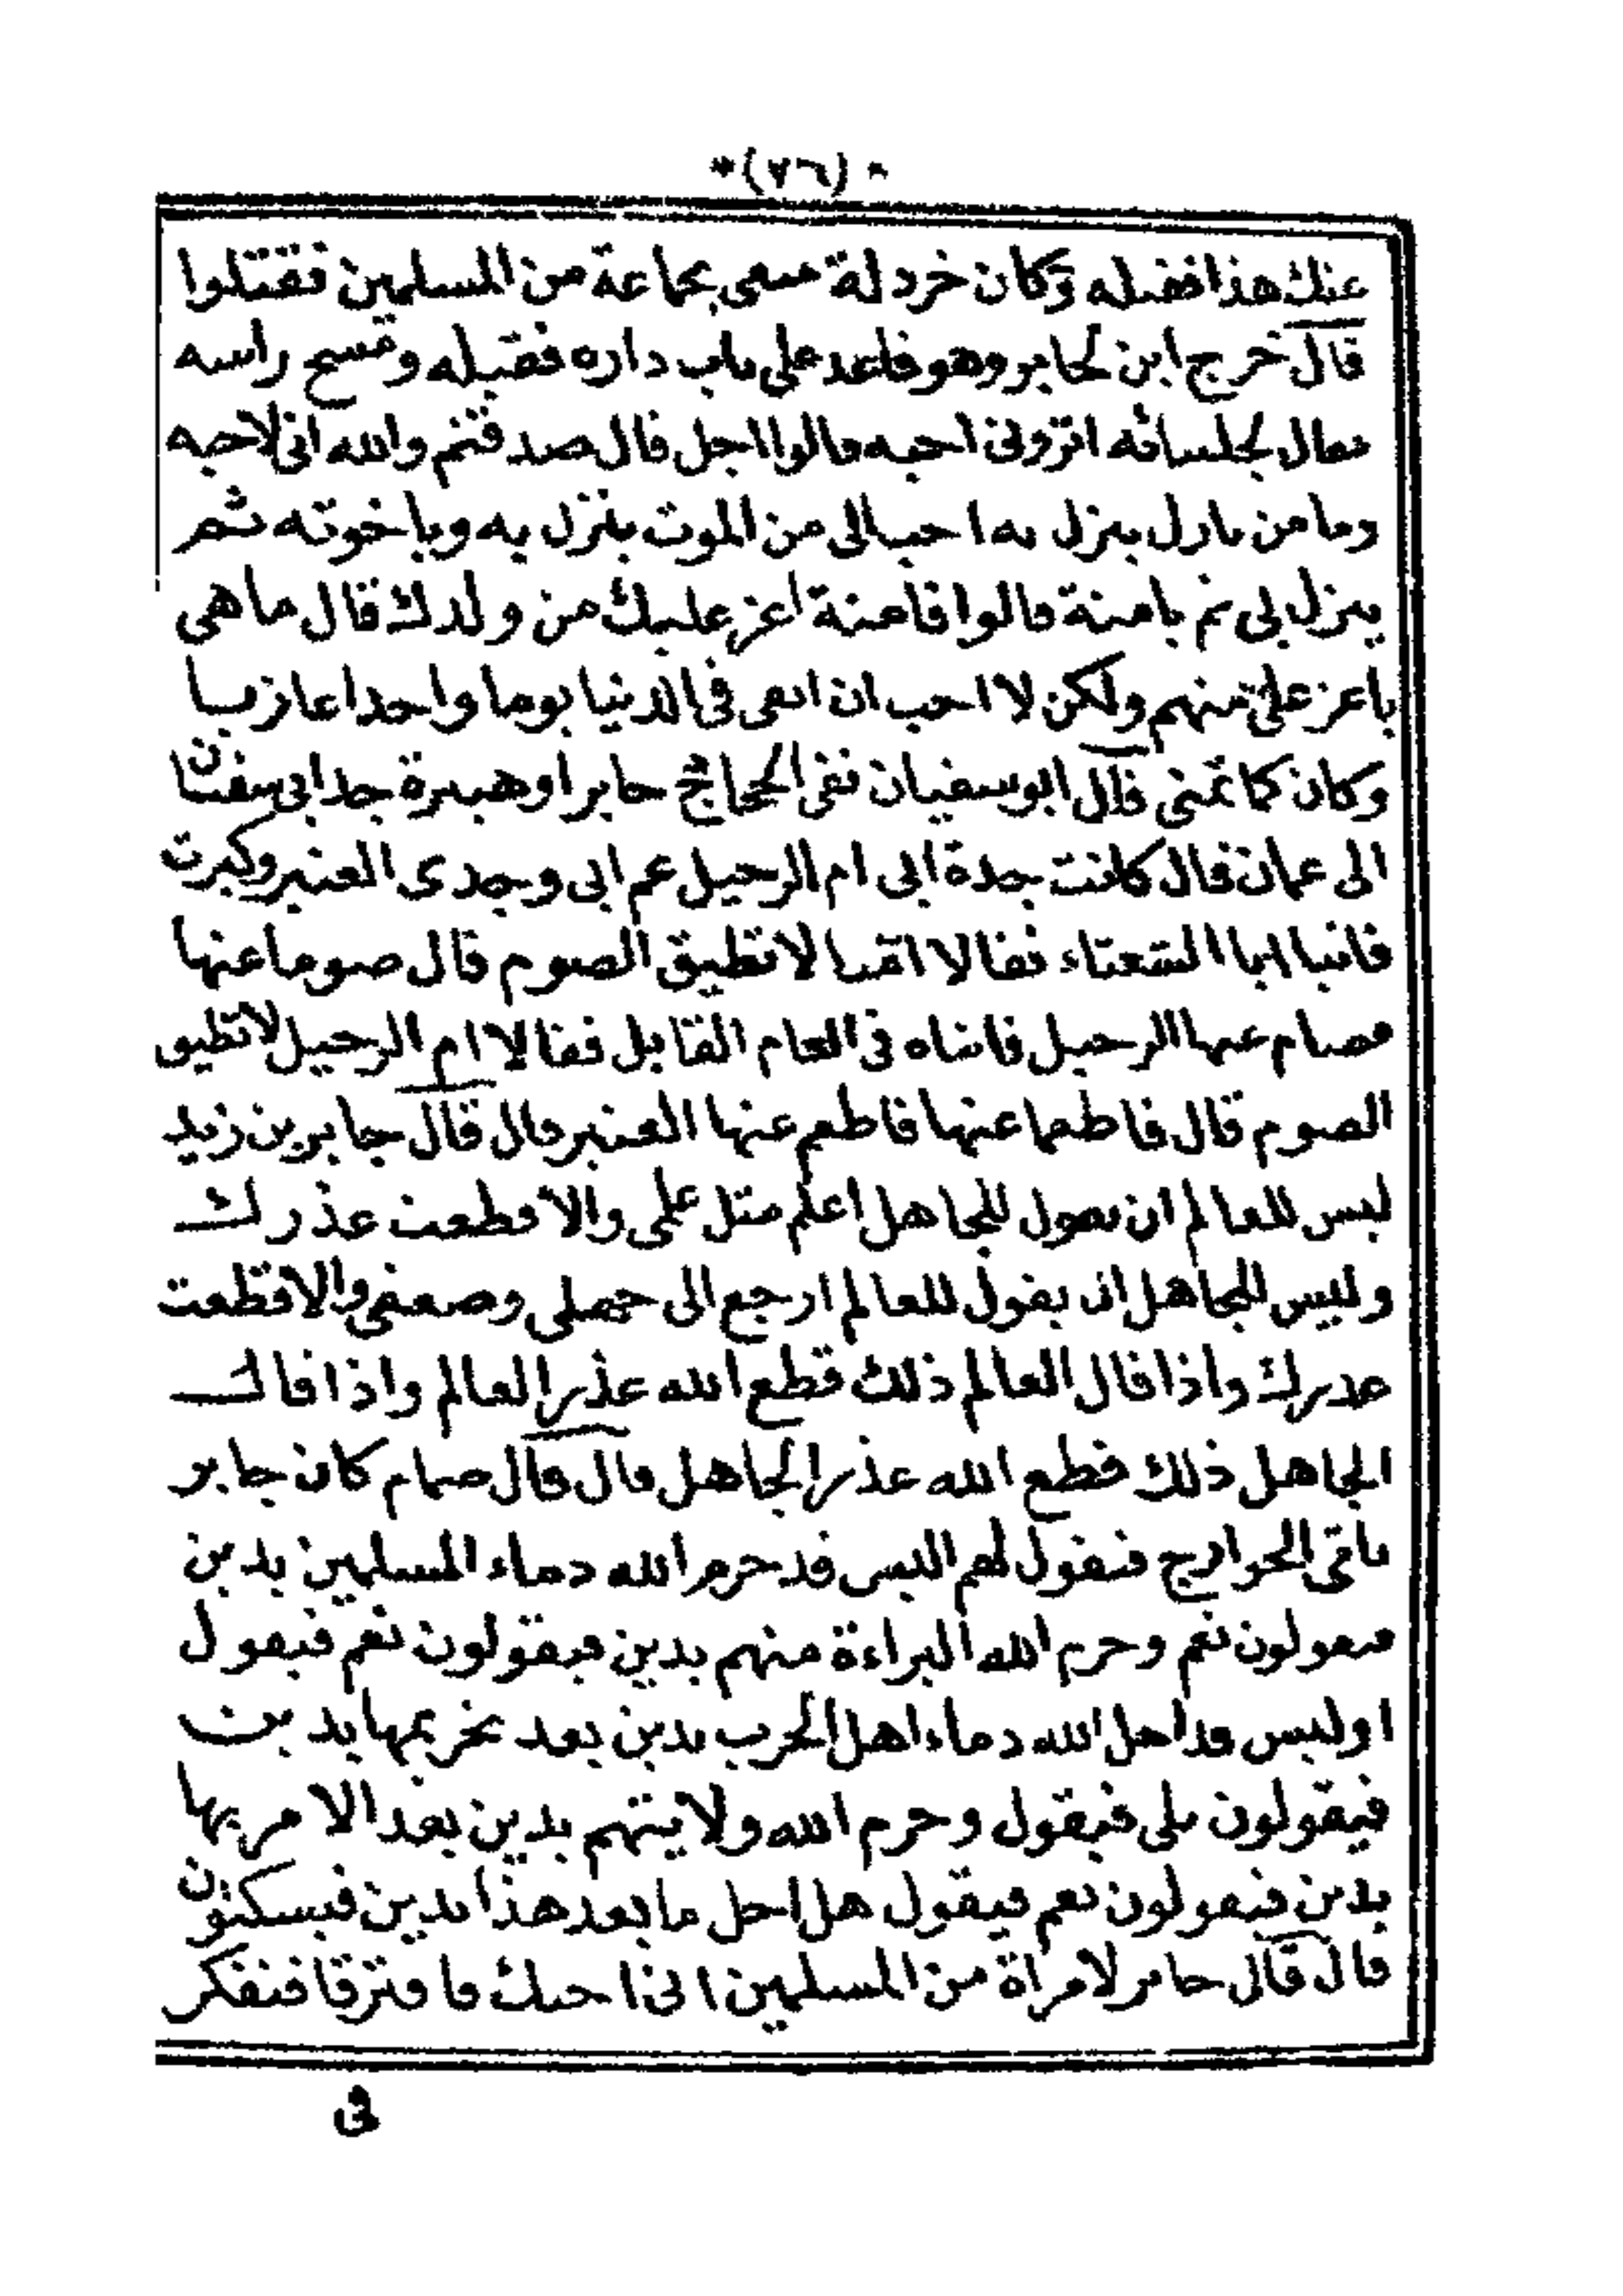 *(٧٦)*
عنك هذا فقتله وكان خردلة سعى بجماعة من المسلمين فقتلوا
قال خرج ابن لجابر وهو قاعد على باب داره فقبله ومسح راسه
فقال لجلسائه اترونى احبه قالوا اجل قال صدقتم والله انى لاحبه
وما من نازل ينزل به احب الى من الموت ينزل به وباخوته ثم
ينزل بى ثم بامنة قالوا فامنة اعز عليك من ولدك قال ما هى
باعز على منهم ولكن لا احب ان ابقى فى الدنيا يوما واحدا عازبا
وكان كما تمنى قال ابو سفيان نفى الحجاج جابرا وهبيرة جد ابى سفيان
الى عمان قال كانت جدة ابى ام الرحيل عم ابى وجدى العنبر وكبرت
فاتيا ابا الشعثاء فقالا امنا لا تطيق الصوم قال صوما عنها
فصام عنها الرحيل فاتياه فى العام القابل فقالا ام الرحيل لا تطيق
الصوم قال فاطعما عنها فاطعم عنها العنبر قال قال جابر بن زيد
ليس للعالم ان يقول للجاهل اعلم مثل علمى والا قطعت عذرك
وليس للجاهل ان يقول للعالم ارجع الى جهلى وضعفى والا قطعت
عذرك واذا قال العالم ذلك قطع الله عذر العالم واذا قال
الجاهل ذلك قطع الله عذر الجاهل قال قال ضمام كان جابر
ياتى الخوارج فيقول لهم اليس قد حرم الله دماء المسلمين بدين
فيقولون نعم وحرم الله البراءة منهم بدين فيقولون نعم فيقول
اوليس قد احل الله دماء اهل الحرب بدين بعد تحريمها بدين
فيقولون بلى فيقول وحرم الله ولايتهم بدين بعد الامر بها
بدين فيقولون نعم فيقول هل احل ما بعد هذا بدين فيسكتون
قال قال جابر لامراة من المسلمين انى احبك فافترقا فتفكر
فى